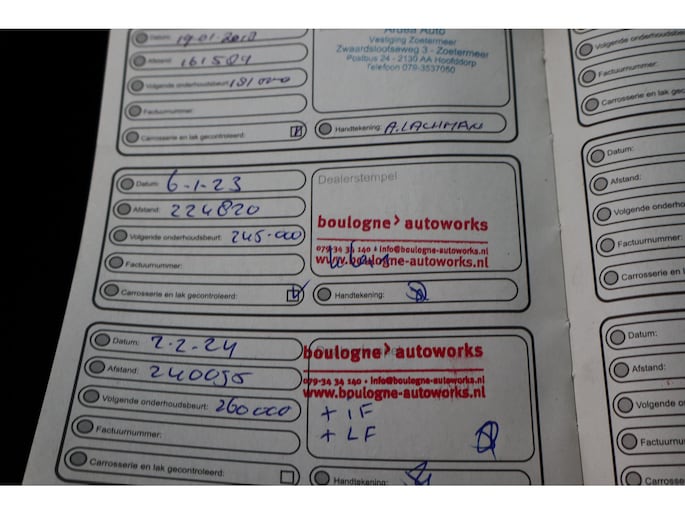 Datum: 19-01-2018
Afstand: 161584
Volgende onderhoudsbeurt: 181000
Factuurnummer:
Carrosserie en lak gecontroleerd:
Ardea Auto
Vestiging Zoetermeer
Zwaardslootseweg 3 - Zoetermeer
Postbus 24 - 2130 AA Hoofddorp
Telefoon 079-3537050
Handtekening: A. LACHMAN
Datum: 6-1-23
Afstand: 224820
Volgende onderhoudsbeurt: 245.000
Factuurnummer:
Carrosserie en lak gecontroleerd:
Dealerstempel
boulogne> autoworks
079-34 34 140 • info@boulogne-autoworks.nl
www.boulogne-autoworks.nl
Handtekening:
Datum: 2-2-24
Afstand: 240055
Volgende onderhoudsbeurt: 260000
Factuurnummer:
Carrosserie en lak gecontroleerd:
boulogne> autoworks
079-34 34 140 • info@boulogne-autoworks.nl
www.boulogne-autoworks.nl
+ IF
+ LF
Handtekening:
Volgende onderhoudsbe
Factuurnummer:
Carrosserie en lak gec
Datum:
Afstand:
Volgende onderho
Factuurnummer:
Carrosserie en l
Datum:
Afstand:
Volgende o
Factuurnu
Carrosse